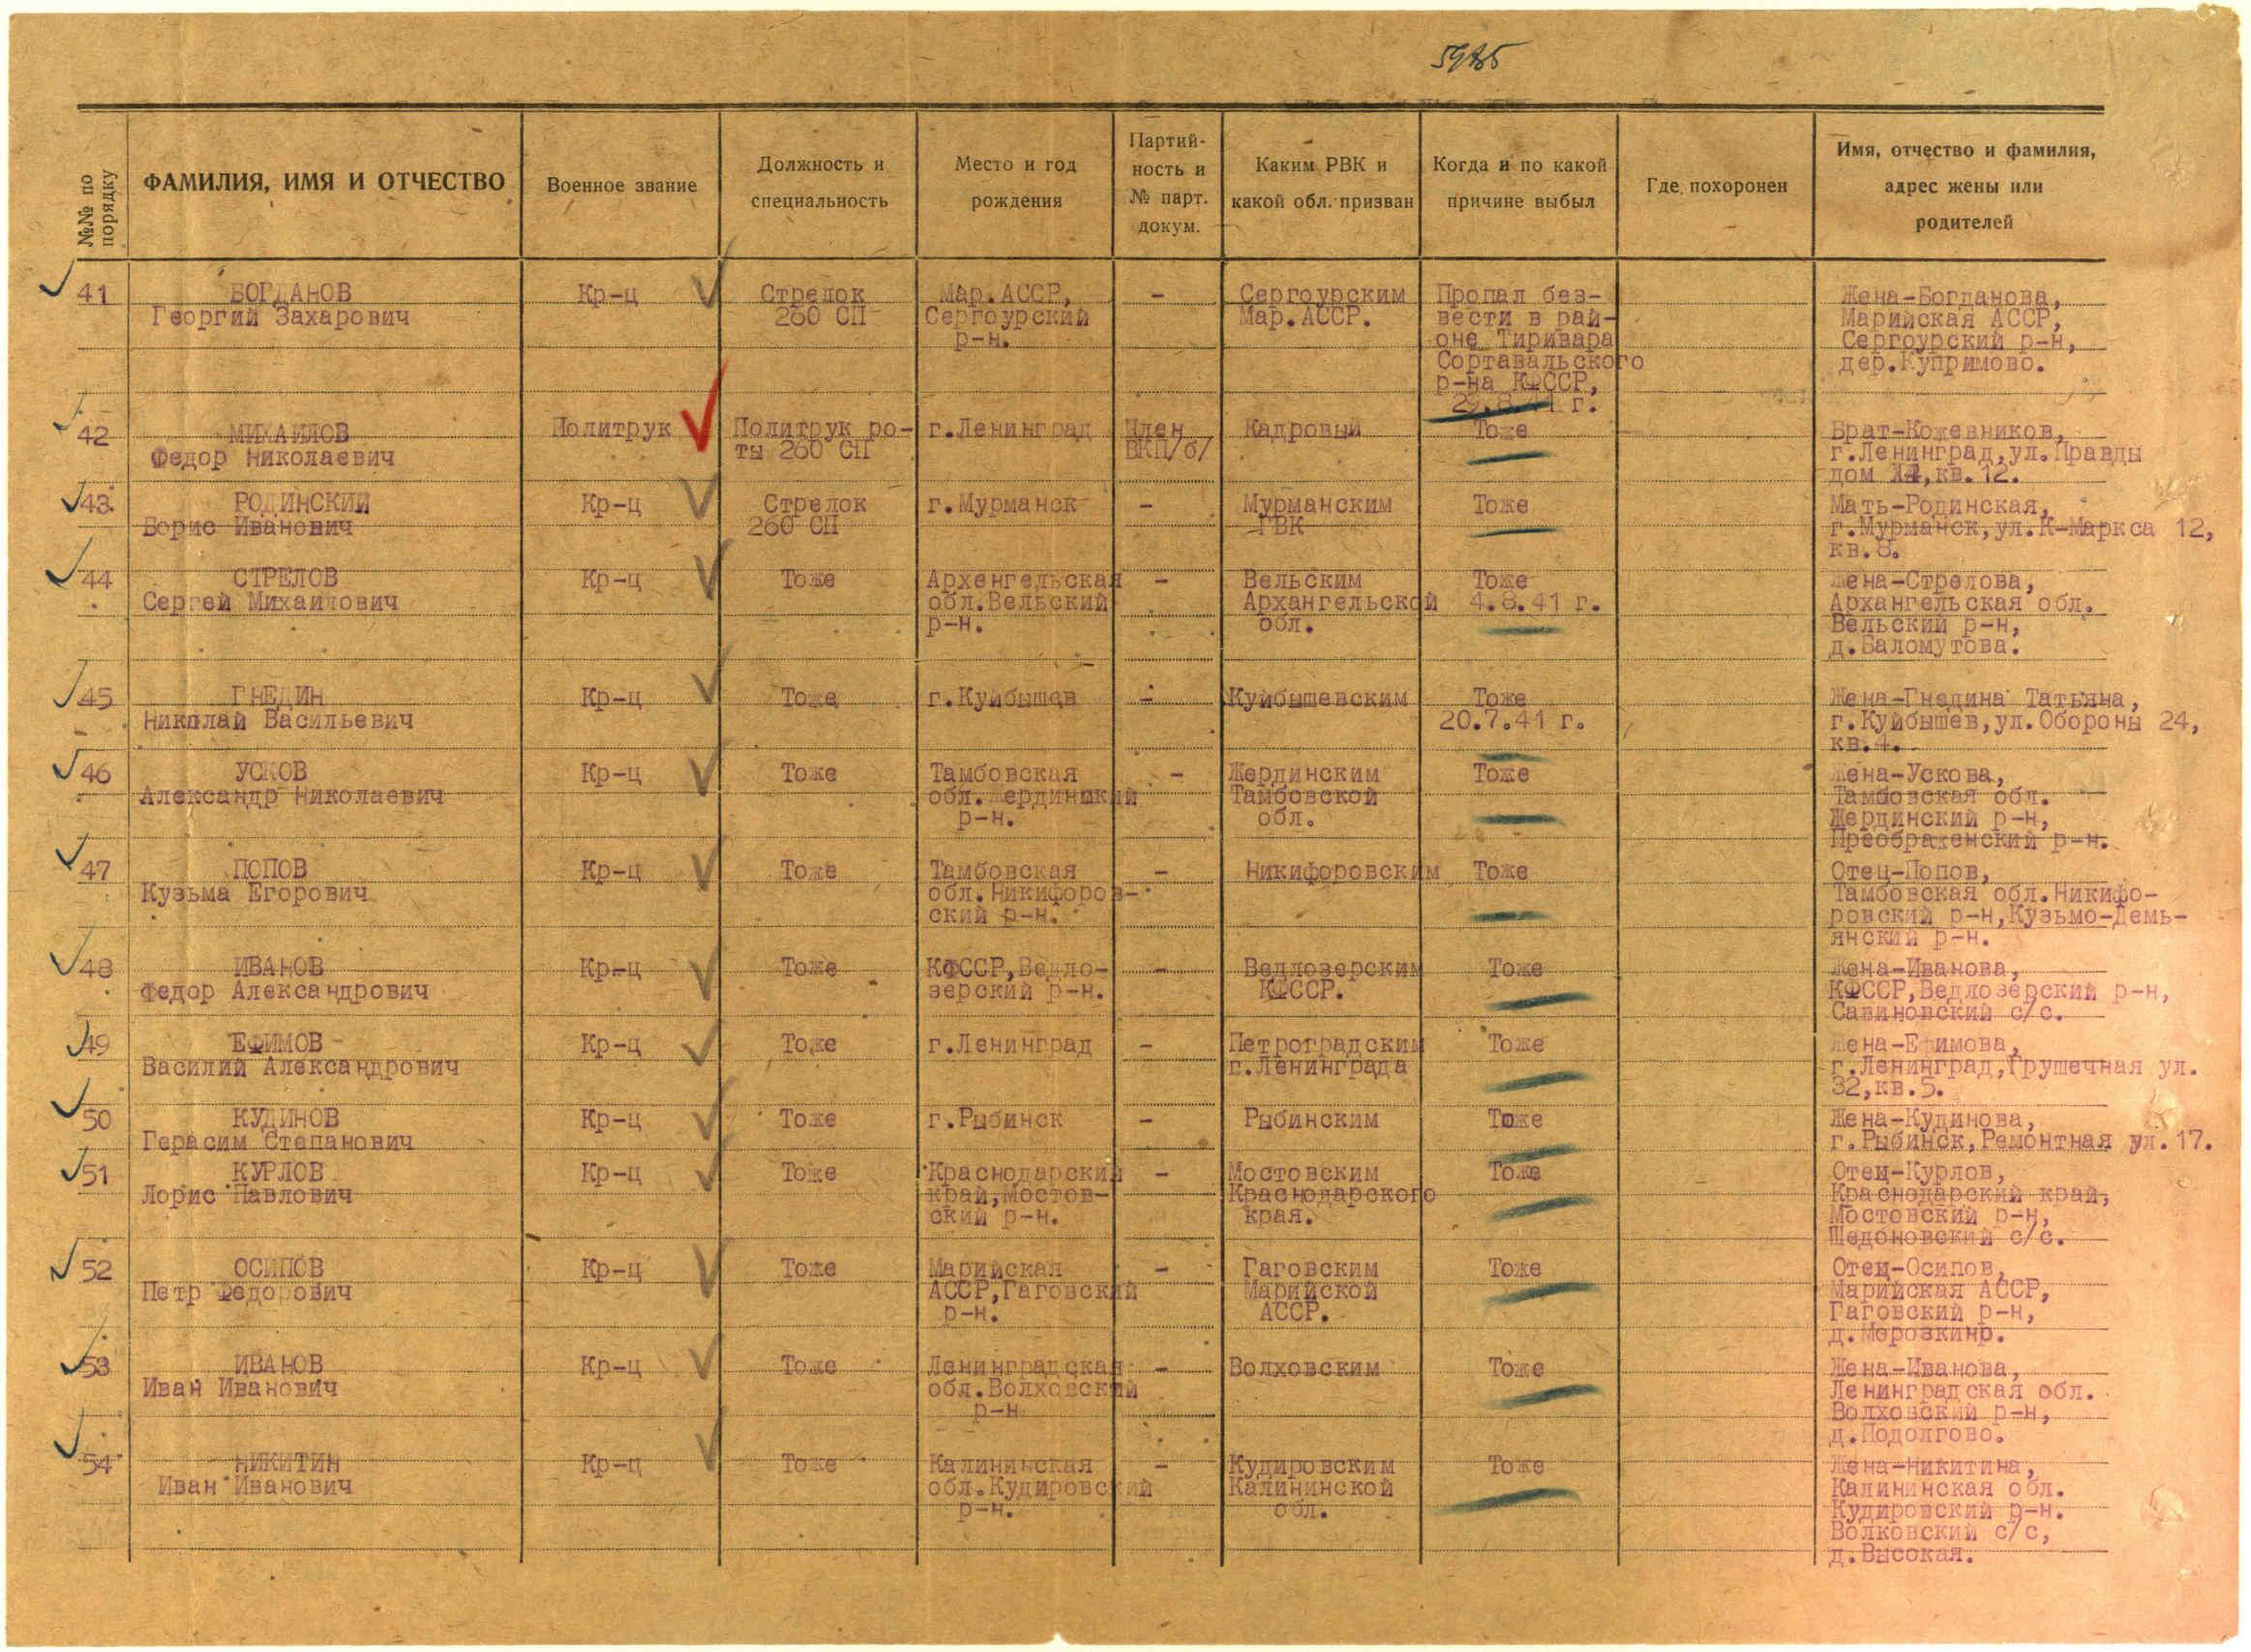 5985
№№ по порядку
ФАМИЛИЯ, ИМЯ И ОТЧЕСТВО
Военное звание
Должность и
специальность
Место и год
рождения
Партий-
ность и
№ парт.
докум.
Каким РВК и
какой обл. призван
Когда и по какой
причине выбыл
Где похоронен
Имя, отчество и фамилия,
адрес жены или
родителей
41 БОГДАНОВ Кр-ц Стрелок Мар.АССР, - Сергоурским Пропал без- Жена-Богданова,
Георгий Захарович 260 СП Сергоурский Мар.АССР. вести в рай- Марийская АССР,
р-н. оне Тиривара Сергоурский р-н,
Сортавальского дер.Купримово.
р-на КФССР,
29.8.41 г.
42 МИХАИЛОВ Политрук Политрук ро- г.Ленинград Член Кадровый Тоже Брат-Кожевников,
Федор Николаевич ты 260 СП ВКП/б/ г.Ленинград,ул.Правды
дом 14,кв.12.
43. РОДИНСКИЙ Кр-ц Стрелок г.Мурманск - Мурманским Тоже Мать-Родинская,
Борис Иванович 260 СП ГВК г.Мурманск,ул.К-Маркса 12,
кв.8.
44 СТРЕЛОВ Кр-ц Тоже Архенгельская - Вельским Тоже Жена-Стрелова,
Сергей Михаилович обл.Вельский Архангельской 4.8.41 г. Архангельская обл.
р-н. обл. Вельский р-н,
д.Баломутова.
45 ГНЕДИН Кр-ц Тоже г.Куйбышев - Куйбышевским Тоже Жена-Гнедина Татьяна,
Николай Васильевич 20.7.41 г. г.Куйбышев,ул.Обороны 24,
кв.4.
46 УСКОВ Кр-ц Тоже Тамбовская - Жердинским Тоже Жена-Ускова,
Александр Николаевич обл.Жердинский Тамбовской Тамбовская обл.
р-н. обл. Жердинский р-н,
Преображенский р-н.
47 ПОПОВ Кр-ц Тоже Тамбовская - Никифоровским Тоже Отец-Попов,
Кузьма Егорович обл.Никифоров- Тамбовская обл.Никифо-
ский р-н. ровский р-н,Кузьмо-Демь-
янский р-н.
48 ИВАНОВ Кр-ц Тоже КФССР,Ведло- - Ведлозерским Тоже Жена-Иванова,
Федор Александрович зерский р-н. КФССР. КФССР,Ведлозерский р-н,
Савиновский с/с.
49 ЕФИМОВ Кр-ц Тоже г.Ленинград - Петроградским Тоже Жена-Ефимова,
Василий Александрович г.Ленинграда г.Ленинград,Грушечная ул.
32,кв.5.
50 КУДИНОВ Кр-ц Тоже г.Рыбинск - Рыбинским Тоже Жена-Кудинова,
Герасим Степанович г.Рыбинск,Ремонтная ул.17.
51 КУРЛОВ Кр-ц Тоже Краснодарский - Мостовским Тоже Отец-Курлов,
Лорис Павлович край,Мостов- Краснодарского Краснодарский край,
ский р-н. края. Мостовский р-н,
Шедоновский с/с.
52 ОСИПОВ Кр-ц Тоже Марийская - Гаговским Тоже Отец-Осипов,
Петр Федорович АССР,Гаговский Марийской Марийская АССР,
р-н. АССР. Гаговский р-н,
д.Морозкино.
53 ИВАНОВ Кр-ц Тоже Ленинградская - Волховским Тоже Жена-Иванова,
Иван Иванович обл.Волховский Ленинградская обл.
р-н Волховский р-н,
д.Подолгово.
54 НИКИТИН Кр-ц Тоже Калининская - Кудировским Тоже Жена-Никитина,
Иван Иванович обл.Кудировский Калининской Калининская обл.
р-н. обл. Кудировский р-н.
Волковский с/с,
д.Высокая.